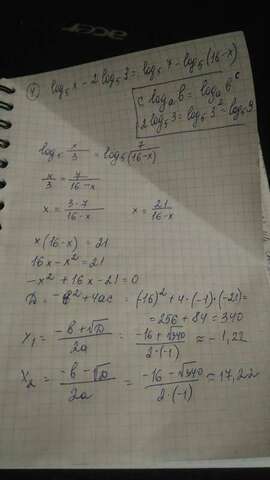 acer
4) log₅x - 2log₅3 = log₅7 - log₅(16-x)
c log_a b = log_a b^c
2log₅3 = log₅3² = log₅9
log₅ x/3 = log₅ 7/(16-x)
x/3 = 7/(16-x)
x = 3·7/(16-x) x = 21/(16-x)
x(16-x) = 21
16x - x² = 21
-x² + 16x - 21 = 0
D = -b² + 4ac = (-16)² + 4·(-1)·(-21) =
= 256 + 84 = 340
x₁ = (-b + √D)/2a = (-16 + √340)/(2·(-1)) ≈ -1,22
x₂ = (-b - √D)/2a = (-16 - √340)/(2·(-1)) ≈ 17,22